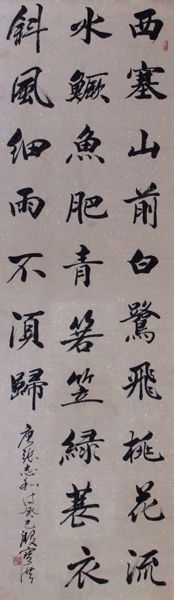 西塞山前白鷺飛桃花流
水鱖魚肥青箬笠緑蓑衣
斜風細雨不須歸
唐張志和詩癸巳殷寶洪